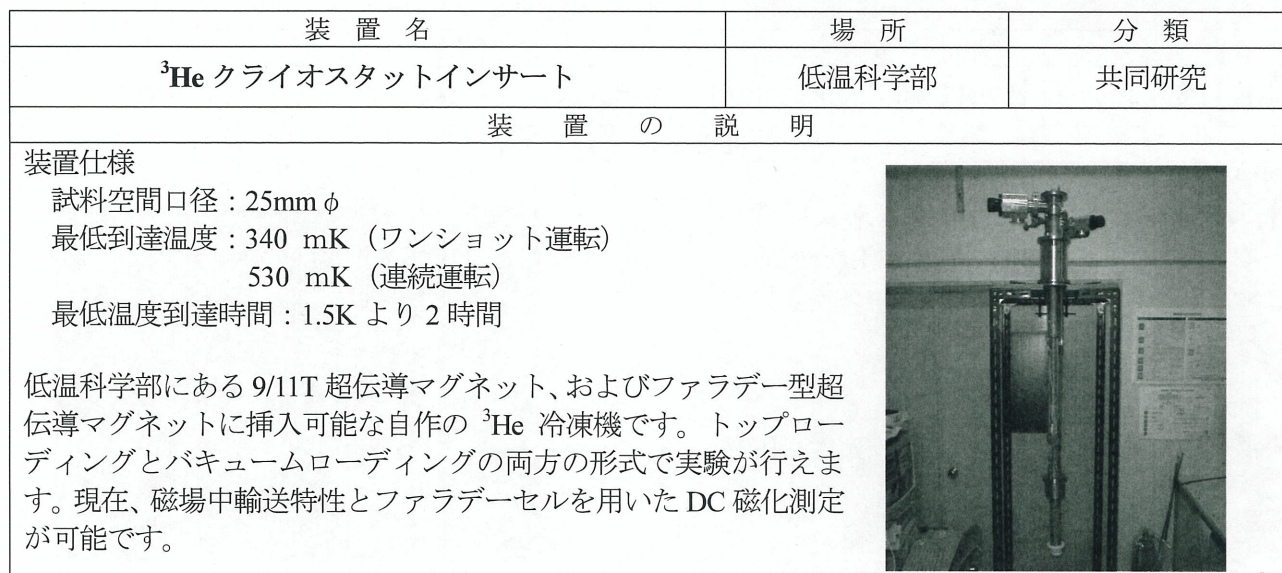 装 置 名 場 所 分 類
³He クライオスタットインサート 低温科学部 共同研究
装 置 の 説 明
装置仕様
試料空間口径：25mmφ
最低到達温度：340 mK（ワンショット運転）
530 mK（連続運転）
最低温度到達時間：1.5K より 2 時間
低温科学部にある 9/11T 超伝導マグネット、およびファラデー型超
伝導マグネットに挿入可能な自作の ³He 冷凍機です。トップロー
ディングとバキュームローディングの両方の形式で実験が行えま
す。現在、磁場中輸送特性とファラデーセルを用いた DC 磁化測定
が可能です。